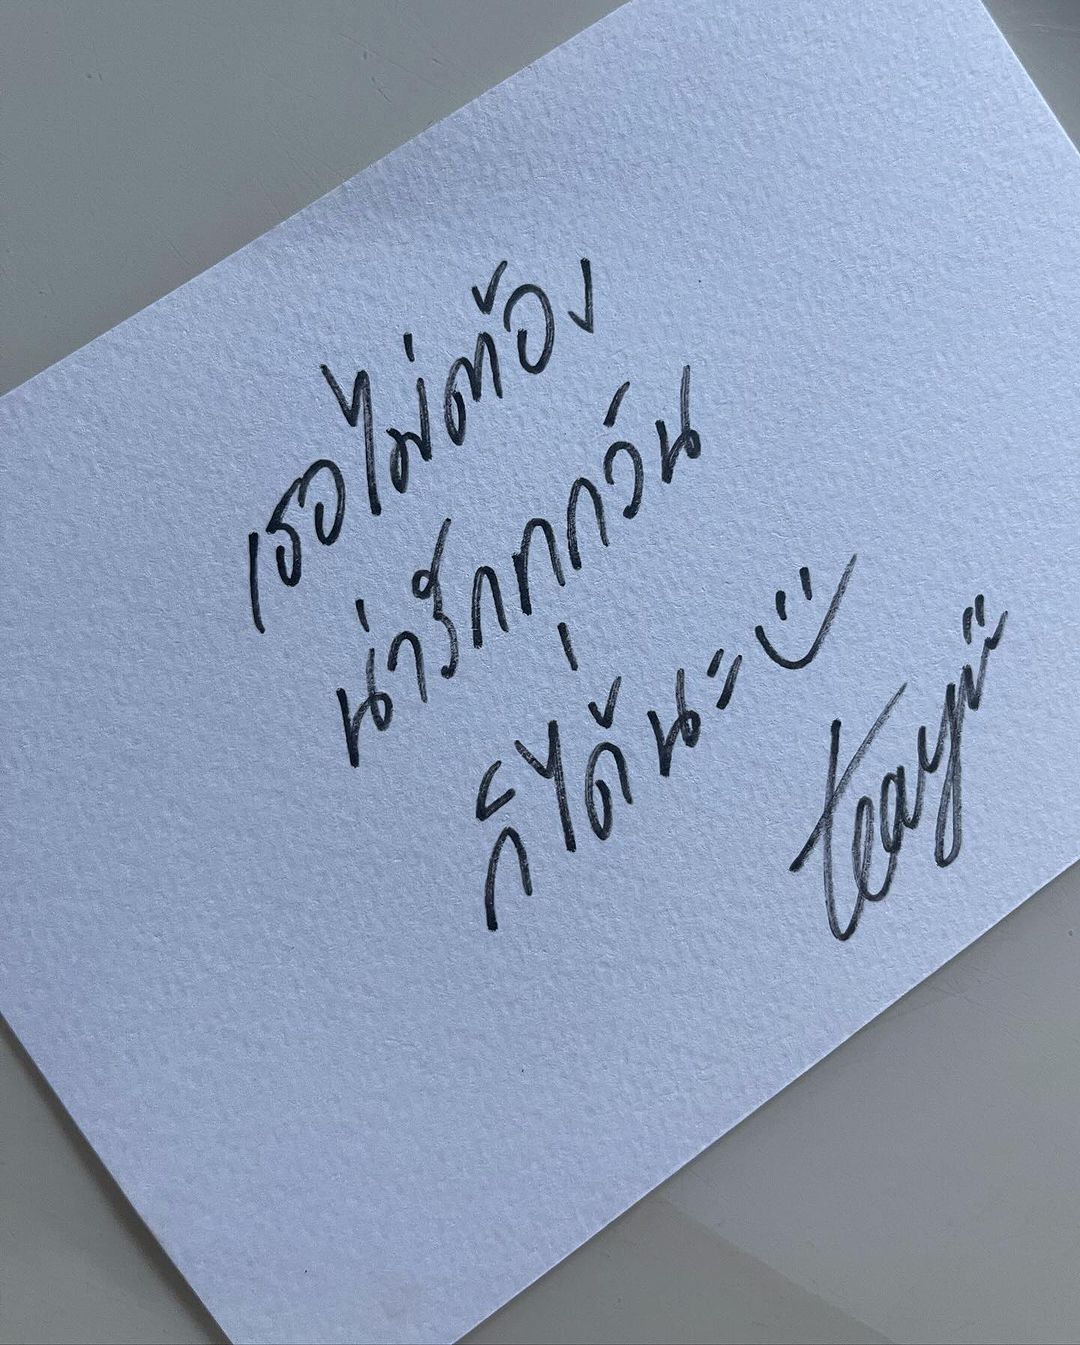 เธอไม่ต้อง
น่ารักทุกวัน
ก็ได้นะ :)